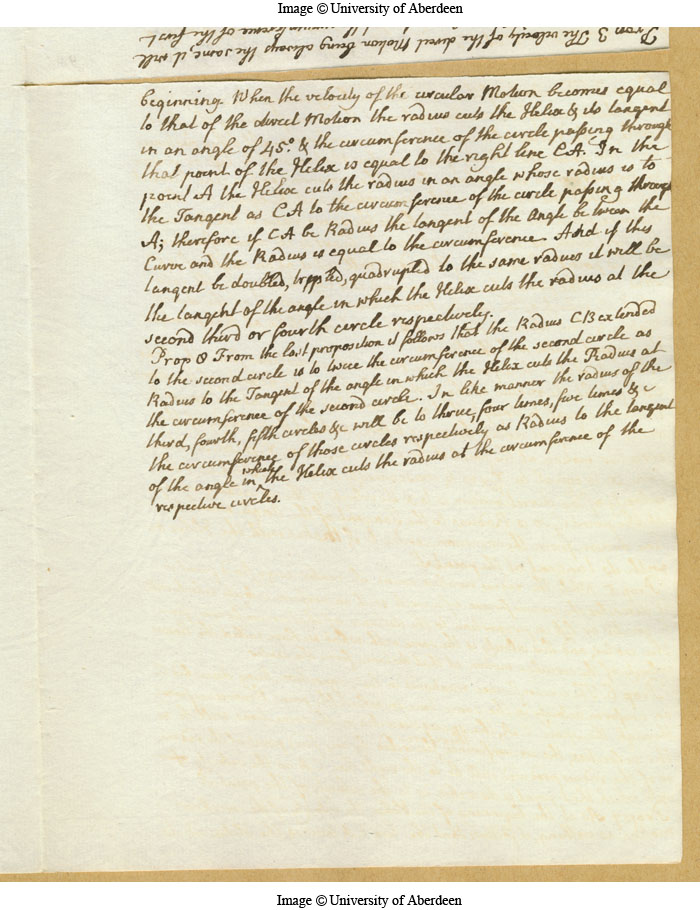 Image © University of Aberdeen
Prop 3 The velocity of the direct Motion being always the same, it will
beginning. When the velocity of the circular Motion becomes equal
to that of the direct Motion the radius cuts the Helix & its tangent
in an angle of 45.° & the circumference of the circle passing through
that point of the Helix is equal to the right line CA. In the
point A the Helix cuts the radius in an angle whose radius is to
the Tangent as CA to the circumference of the circle passing through
A; therefore if CA be Radius the tangent of the Angle between the
Curve and the Radius is equal to the circumference. And if this
tangent be doubled, trippled, quadrupled to the same radius it will be
the tangent of the angle in which the Helix cuts the radius at the
second third or fourth circle respectively.
Prop 8 From the last proposition it follows that the Radius CB extended
to the second circle is to twice the circumference of the second circle as
Radius to the Tangent of the angle in which the Helix cuts the Radius at
the circumference of the second circle. In like manner the radius of the
third, fourth, fifth circles &c will be to thrice, four times, five times &c
the circumference of those circles respectively as Radius to the tangent
of the angle in which the Helix cuts the radius at the circumference of the
respective circles.
Image © University of Aberdeen